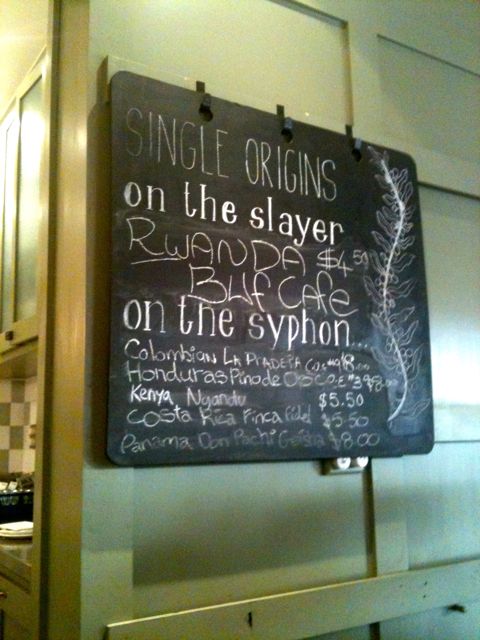 SINGLE ORIGINS
on the slayer
RWANDA $4.50
BUF CAFE
on the syphon...
Colombian LA PRADERA C.O.E #9 $8.00
Honduras Pino de Oso C.O.E #3 $8.00
Kenya Nyandu $5.50
Costa Rica Finca Fidel $5.50
Panama Don Pachi Geisha $8.00